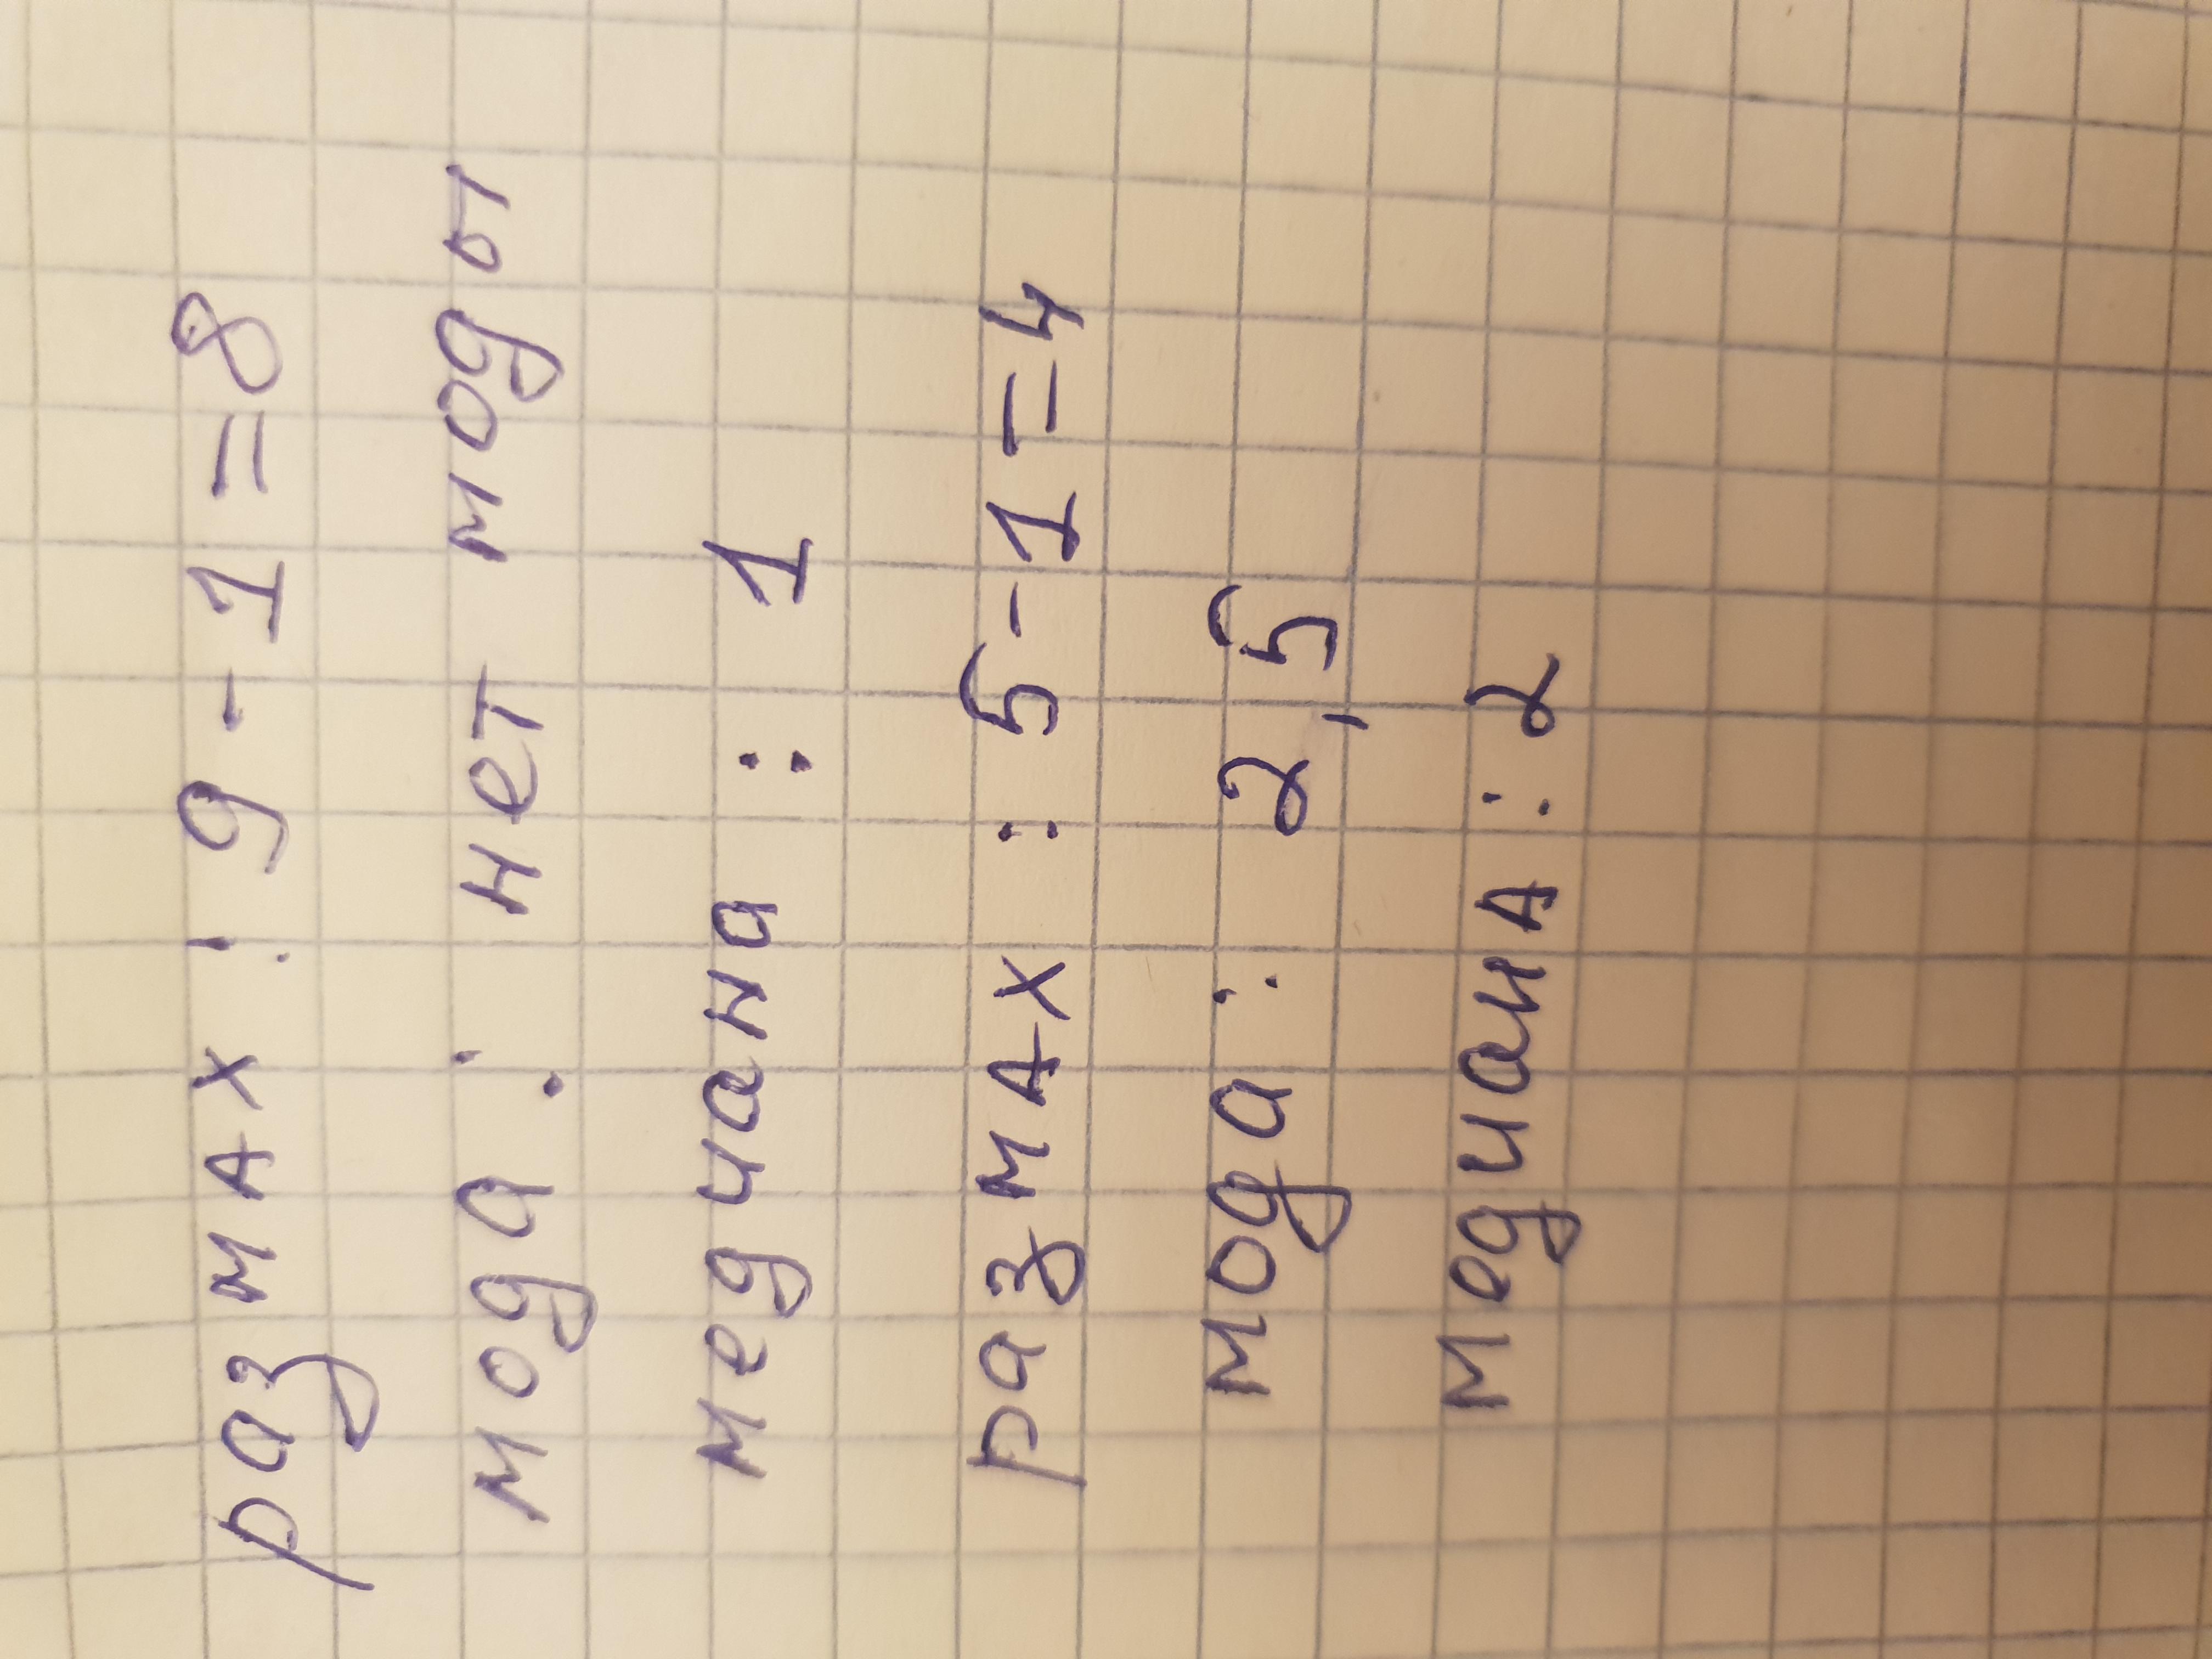 размах : 9 - 1 = 8
мода : нет моды
медиана : 1
размах : 5 - 1 = 4
мода : 2,5
медиана : 2